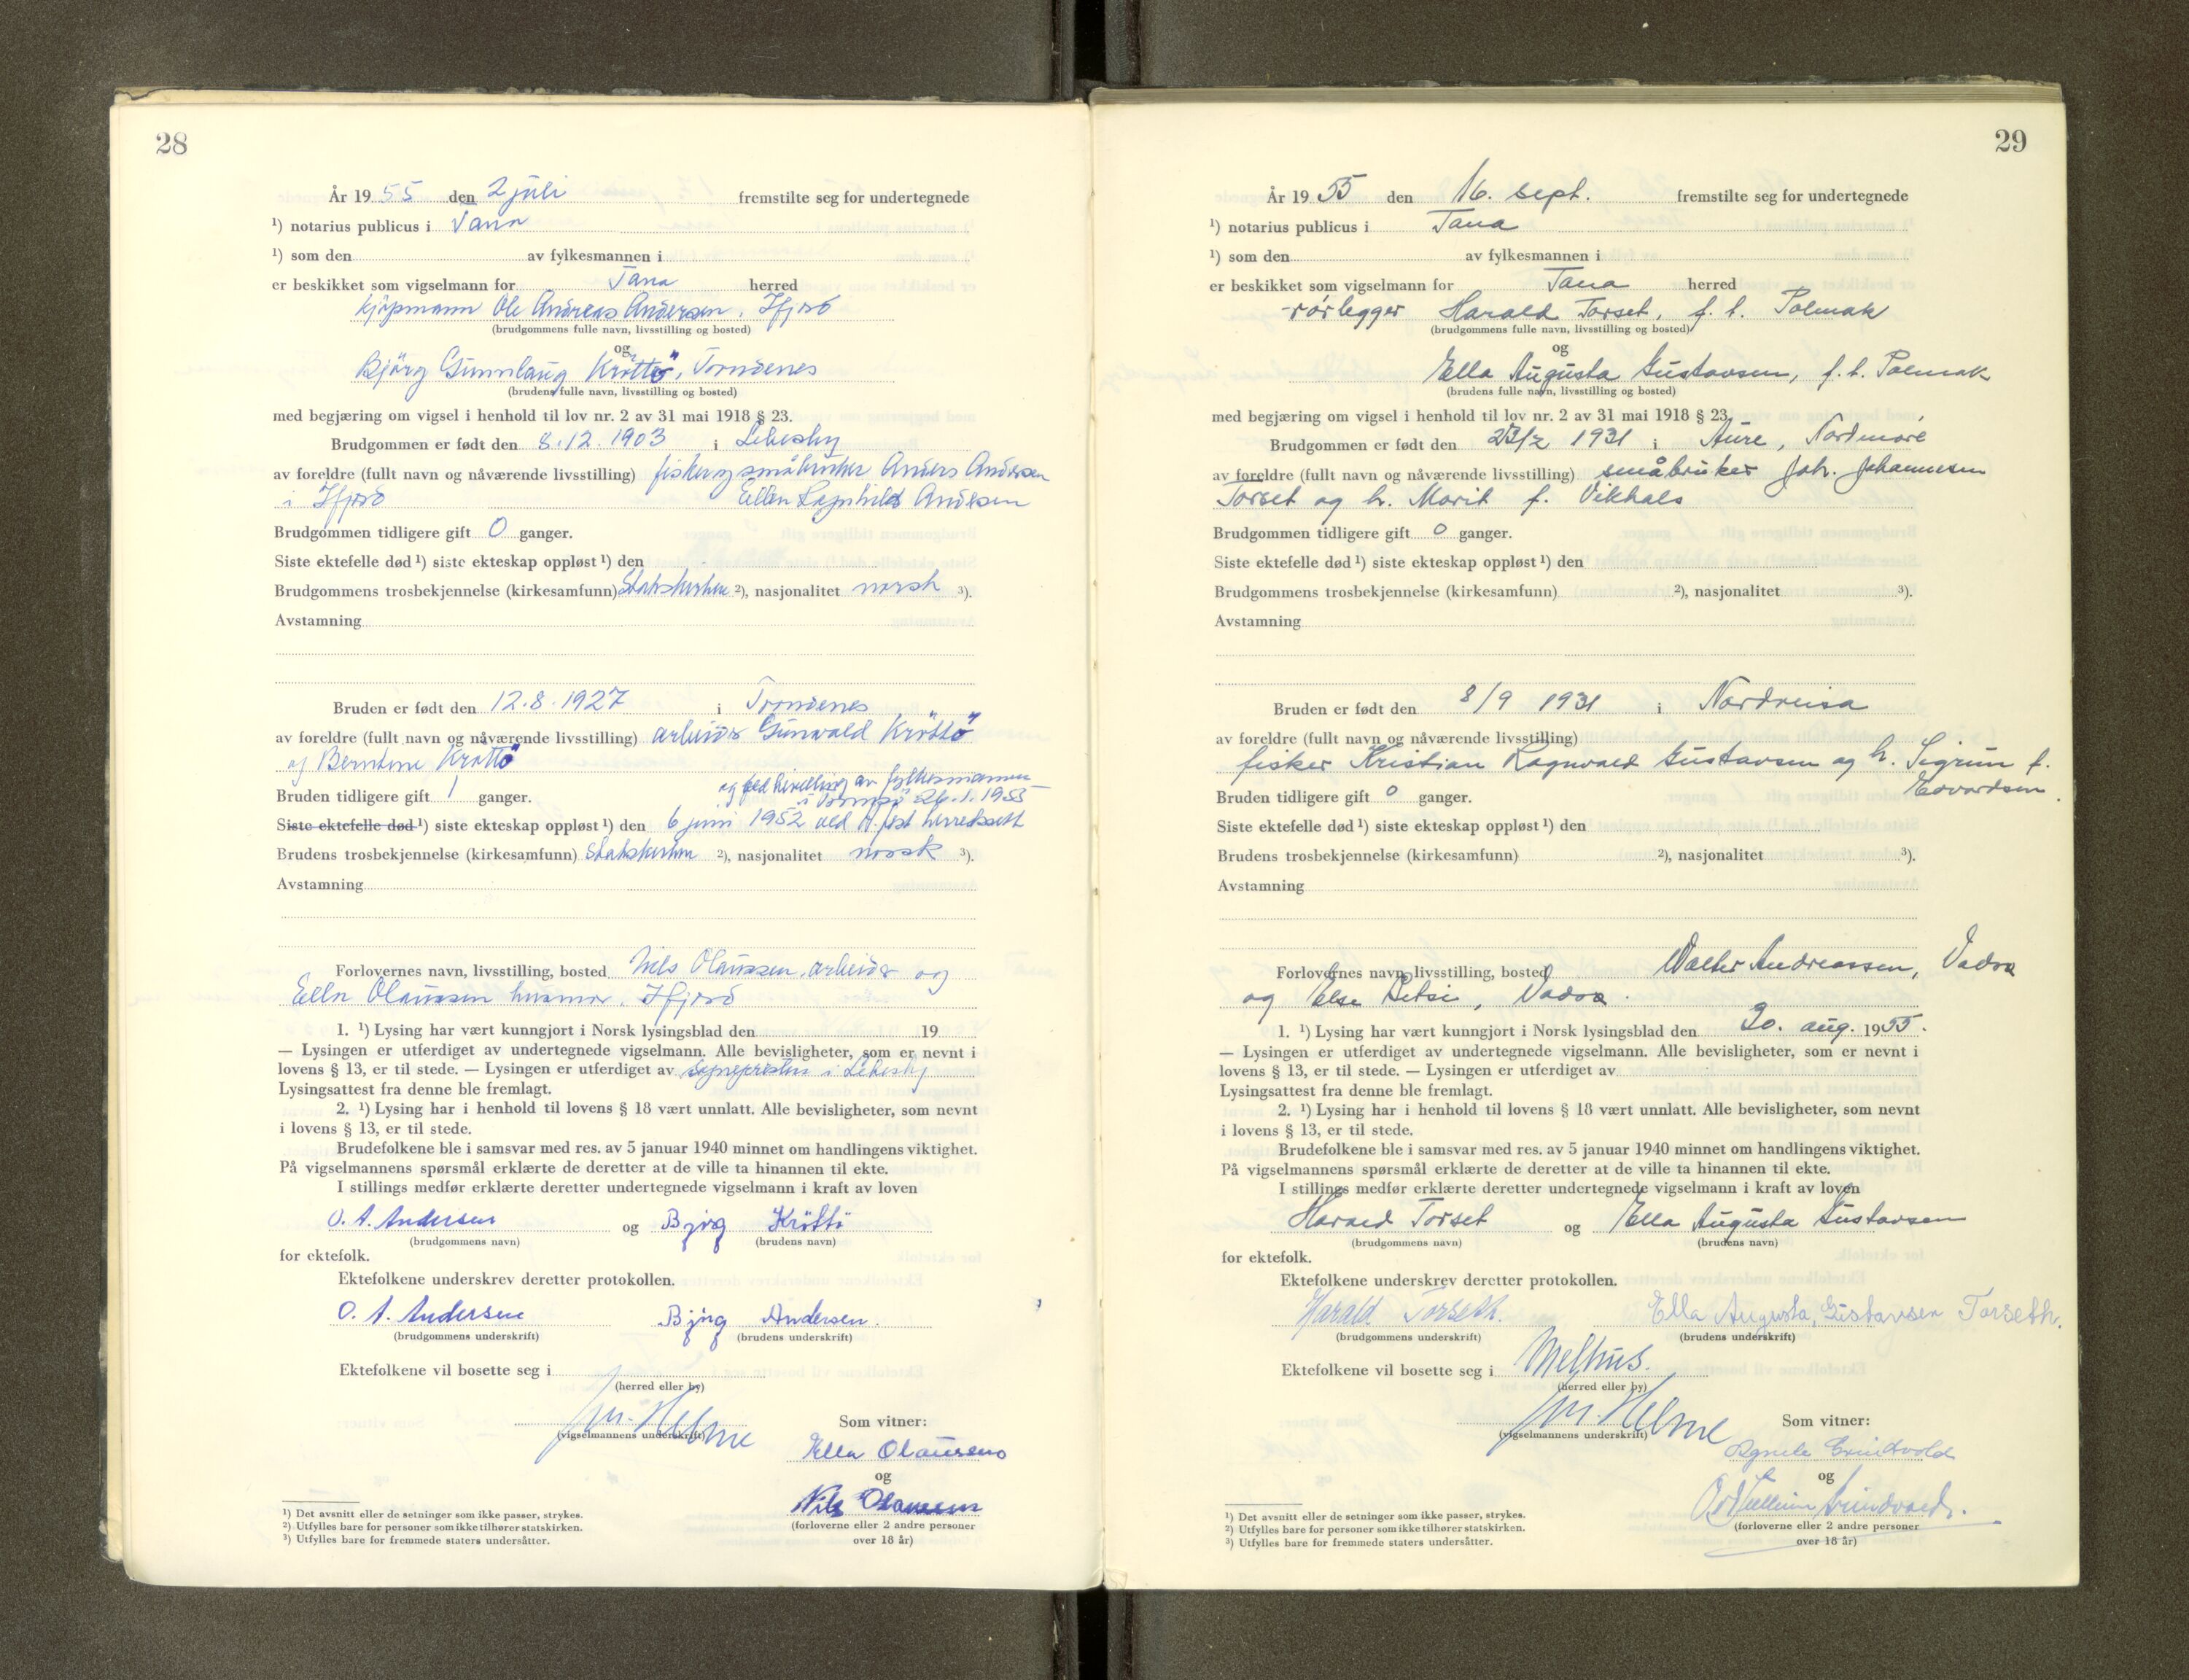 28
År 1955 den 2 juli fremstilte seg for undertegnede
¹) notarius publicus i Tana
¹) som den av fylkesmannen i
er beskikket som vigselmann for Tana herred
kjøpmann Ole Andreas Andersen, Ifjord
(brudgommens fulle navn, livsstilling og bosted)
og
Bjørg Gunnlaug Kröttö, Trondenes
(brudens fulle navn, livsstilling og bosted)
med begjæring om vigsel i henhold til lov nr. 2 av 31 mai 1918 § 23.
Brudgommen er født den 8.12.1903 i Lebesby
av foreldre (fullt navn og nåværende livsstilling) fisker og småbruker Anders Andersen
i Ifjord Ellen Ragnhild Andersen
Brudgommen tidligere gift 0 ganger.
Siste ektefelle død ¹) siste ekteskap oppløst ¹) den
Brudgommens trosbekjennelse (kirkesamfunn) Statskirken ²), nasjonalitet norsk ³).
Avstamning
Bruden er født den 12.8.1927 i Trondenes
av foreldre (fullt navn og nåværende livsstilling) arbeider Gunvald Kröttö
og Berntine Kröttö
og ved bevilling av fylkesmannen
i Tromsö 26.1.1955
Bruden tidligere gift 1 ganger.
Siste ektefelle død ¹) siste ekteskap oppløst ¹) den 6 juni 1952 ved H.fest herredsrett
Brudens trosbekjennelse (kirkesamfunn) Statskirken ²), nasjonalitet norsk ³).
Avstamning
Forlovernes navn, livsstilling, bosted Nils Olaussen, arbeider og
Ella Olaussen husmor, Ifjord
1. ¹) Lysing har vært kunngjort i Norsk lysingsblad den 19
— Lysingen er utferdiget av undertegnede vigselmann. Alle bevisligheter, som er nevnt i
lovens § 13, er til stede. — Lysingen er utferdiget av sognepresten i Lebesby
Lysingsattest fra denne ble fremlagt.
2. ¹) Lysing har i henhold til lovens § 18 vært unnlatt. Alle bevisligheter, som nevnt
i lovens § 13, er til stede.
Brudefolkene ble i samsvar med res. av 5 januar 1940 minnet om handlingens viktighet.
På vigselmannens spørsmål erklærte de deretter at de ville ta hinannen til ekte.
I stillings medfør erklærte deretter undertegnede vigselmann i kraft av loven
O. A. Andersen og Bjørg Kröttö
(brudgommens navn) (brudens navn)
for ektefolk.
Ektefolkene underskrev deretter protokollen.
O. A. Andersen Bjørg Andersen.
(brudgommens underskrift) (brudens underskrift)
Ektefolkene vil bosette seg i
(herred eller by)
Helme
(vigselmannens underskrift)
Som vitner:
Ella Olaussen
og
Nils Olaussen
(forloverne eller 2 andre personer
over 18 år)
¹) Det avsnitt eller de setninger som ikke passer, strykes.
²) Utfylles bare for personer som ikke tilhører statskirken.
³) Utfylles bare for fremmede staters undersåtter.
29
År 1955 den 16. sept. fremstilte seg for undertegnede
¹) notarius publicus i Tana
¹) som den av fylkesmannen i
er beskikket som vigselmann for Tana herred
rørlegger Harald Torset, f. t. Polmak
(brudgommens fulle navn, livsstilling og bosted)
og
Ella Augusta Gustavsen, f. t. Polmak
(brudens fulle navn, livsstilling og bosted)
med begjæring om vigsel i henhold til lov nr. 2 av 31 mai 1918 § 23.
Brudgommen er født den 23/2 1931 i Aure, Nordmøre
av foreldre (fullt navn og nåværende livsstilling) småbruker Joh. Johannesen
Torset og h. Marit f. Vikhals
Brudgommen tidligere gift 0 ganger.
Siste ektefelle død ¹) siste ekteskap oppløst ¹) den
Brudgommens trosbekjennelse (kirkesamfunn) ²), nasjonalitet ³).
Avstamning
Bruden er født den 8/9 1931 i Nordreisa
av foreldre (fullt navn og nåværende livsstilling)
fisker Kristian Ragnvald Gustavsen og h. Sigrun f.
Edvardsen.
Bruden tidligere gift 0 ganger.
Siste ektefelle død ¹) siste ekteskap oppløst ¹) den
Brudens trosbekjennelse (kirkesamfunn) ²), nasjonalitet ³).
Avstamning
Forlovernes navn, livsstilling, bosted Walter Andreassen, Vadsø
og Else Betsi, Vadsø.
1. ¹) Lysing har vært kunngjort i Norsk lysingsblad den 30. aug. 1955.
— Lysingen er utferdiget av undertegnede vigselmann. Alle bevisligheter, som er nevnt i
lovens § 13, er til stede. — Lysingen er utferdiget av
Lysingsattest fra denne ble fremlagt.
2. ¹) Lysing har i henhold til lovens § 18 vært unnlatt. Alle bevisligheter, som nevnt
i lovens § 13, er til stede.
Brudefolkene ble i samsvar med res. av 5 januar 1940 minnet om handlingens viktighet.
På vigselmannens spørsmål erklærte de deretter at de ville ta hinannen til ekte.
I stillings medfør erklærte deretter undertegnede vigselmann i kraft av loven
Harald Torset og Ella Augusta Gustavsen
(brudgommens navn) (brudens navn)
for ektefolk.
Ektefolkene underskrev deretter protokollen.
Harald Torseth. Ella Augusta, Gustavsen Torseth.
(brudgommens underskrift) (brudens underskrift)
Ektefolkene vil bosette seg i Melhus.
(herred eller by)
Helme
(vigselmannens underskrift)
Som vitner:
Agnete Grindvold
og
Grindvold.
(forloverne eller 2 andre personer
over 18 år)
¹) Det avsnitt eller de setninger som ikke passer, strykes.
²) Utfylles bare for personer som ikke tilhører statskirken.
³) Utfylles bare for fremmede staters undersåtter.